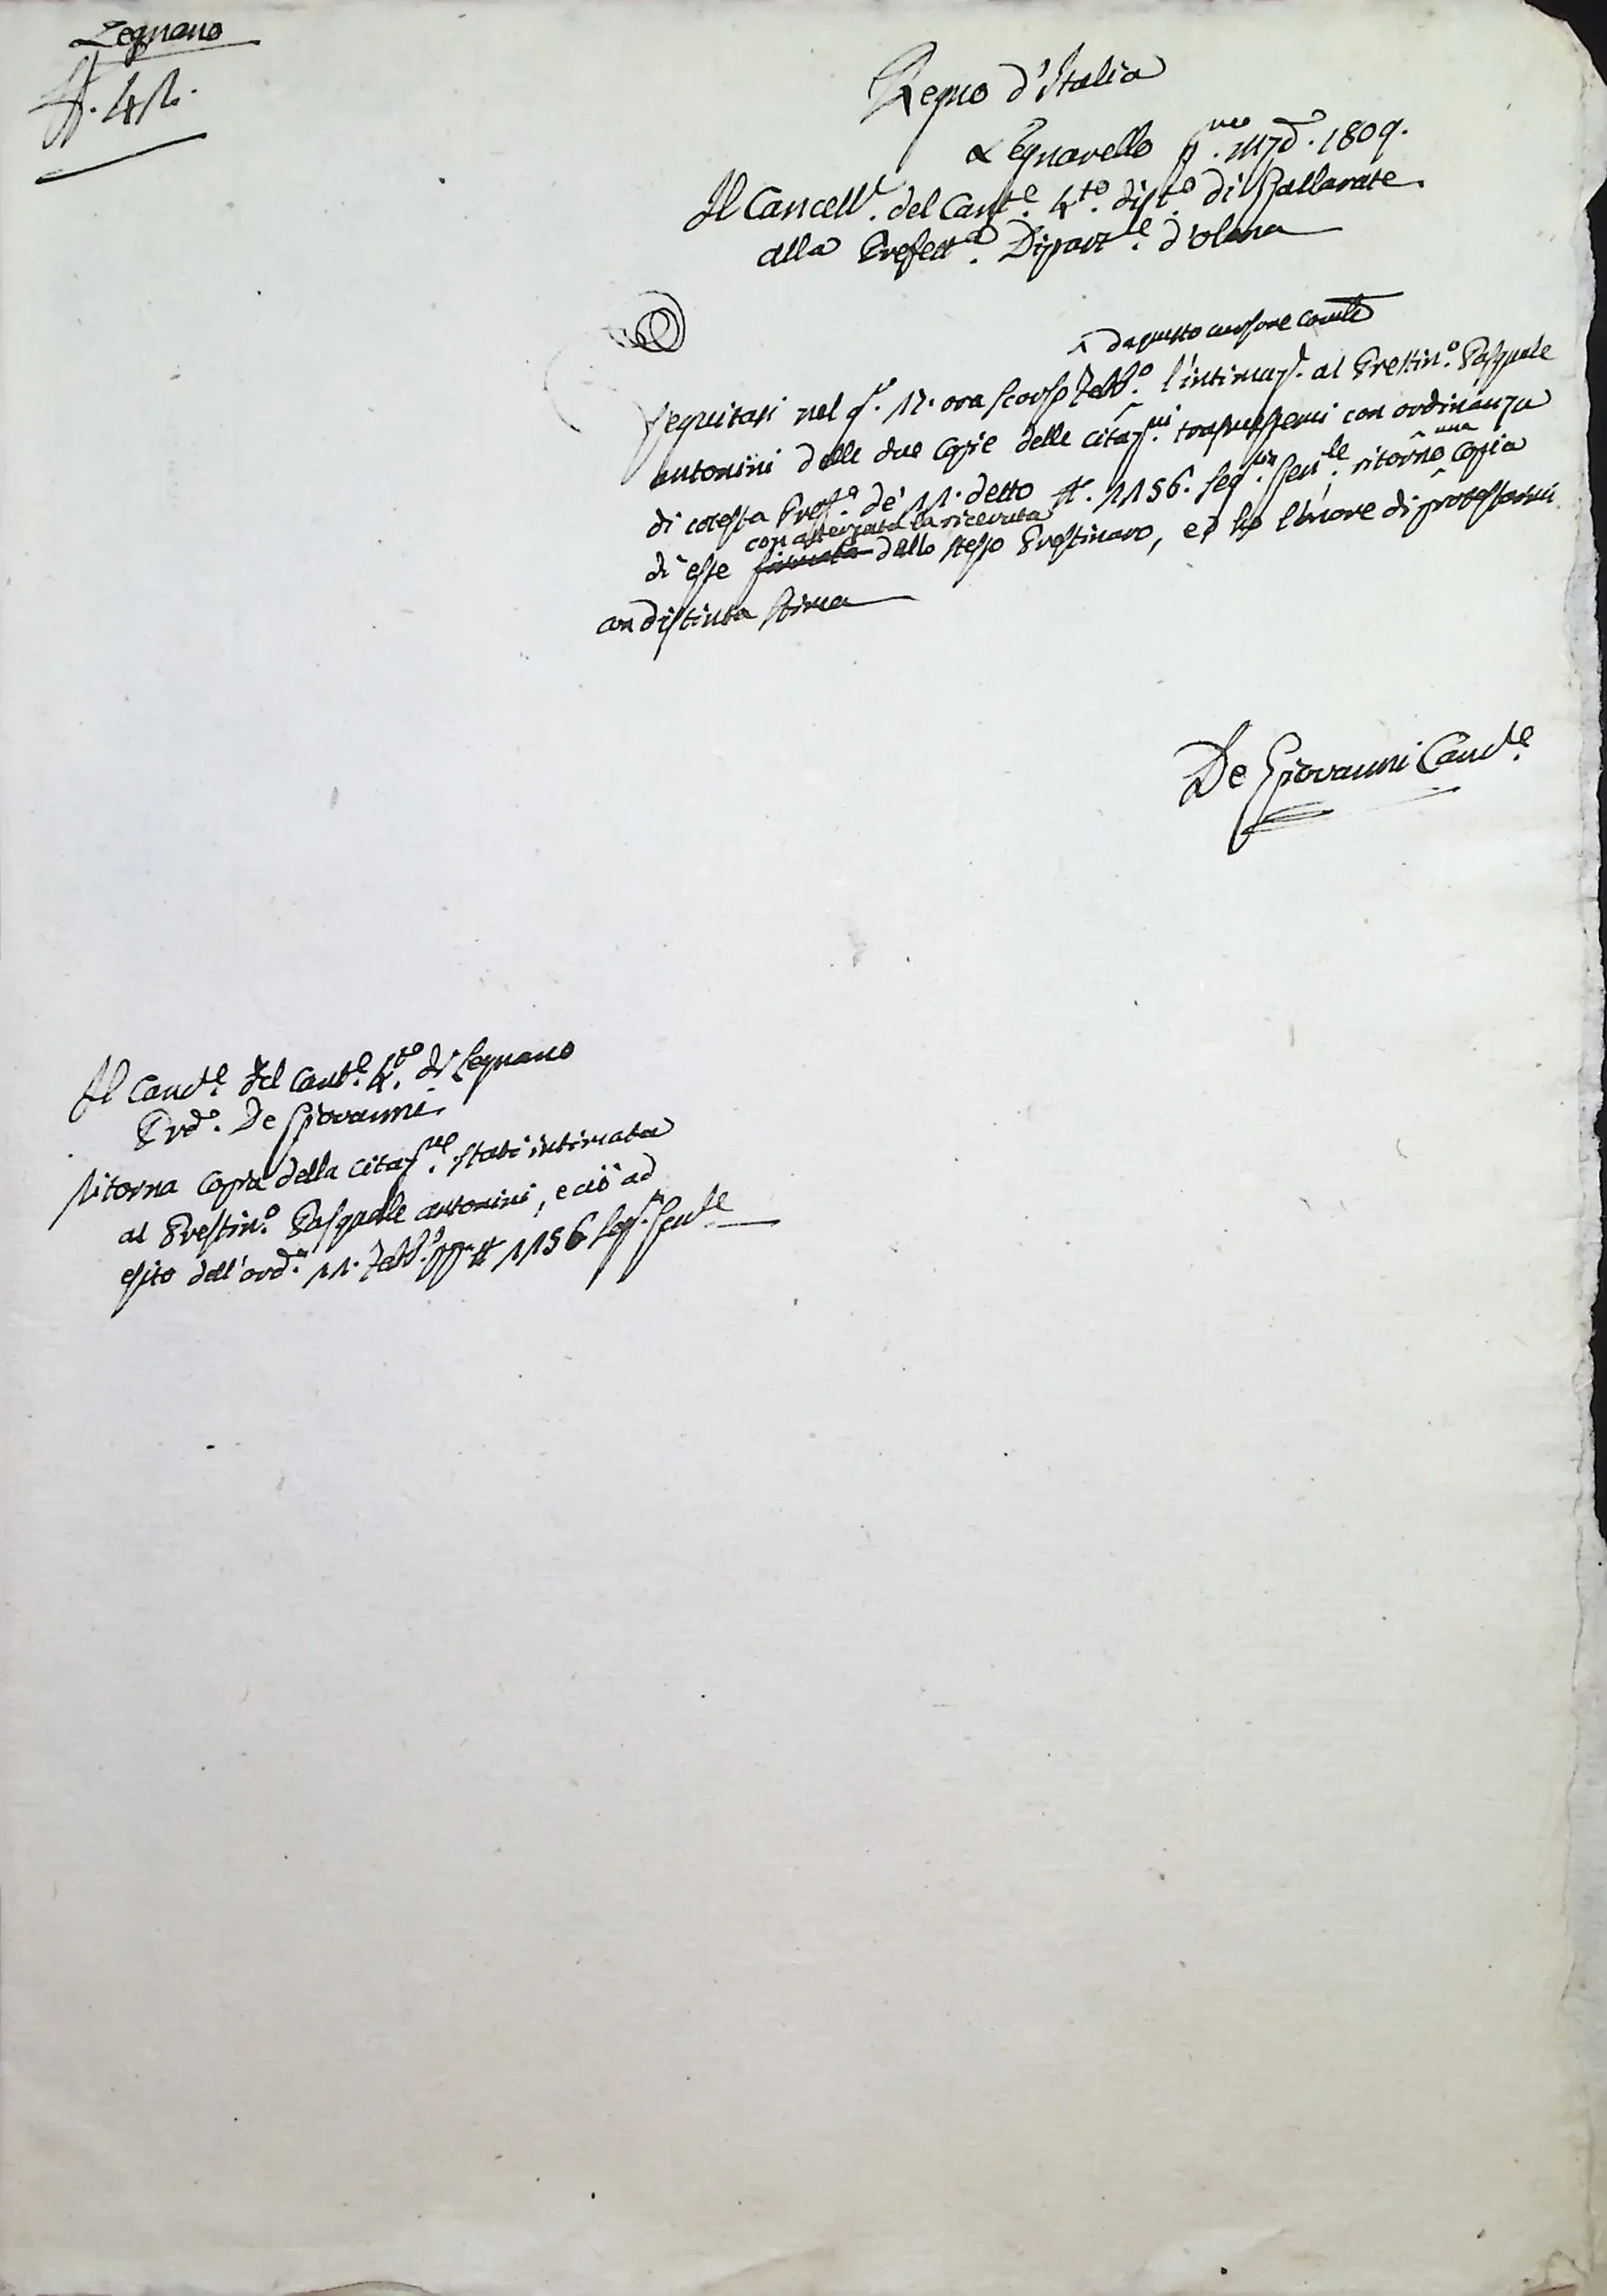 Legnano
N. 42.
Regno d'Italia
Legnarello p.mo mzo. 1809.
Il Cancell.e del Cant.e 4.to dist.o di Gallarate
alla Prefett.a Dipart.le d'Olona
^ da questo cursore com.le
Seguitasi nel g.o 17. ora scorso Febb.o ^ l'intimaz.e al Prestin.o Pasquale
Antonini delle due copie delle citaz.ni trasmessemi con ordinanza
di cotesta Pref.a de' 11. detto N. 1156. Sez. Gen.le, ritorno ^ una copia
con attergata la ricevuta
di esse firmata dello stesso Prestinaro, ed ho l'onore di protestarmi
con distinta stima
De Giovanni Canc.le
Il Canc.e del Cant.e 4.to di Legnano
De Giovanni
Ritorna copia della citaz.ne stata intimata
al Prestin.o Pasquale Antonini, e ciò ad
esito dell'ord.a 11. Febb.o pp. N 1156 Sez. Gen.le